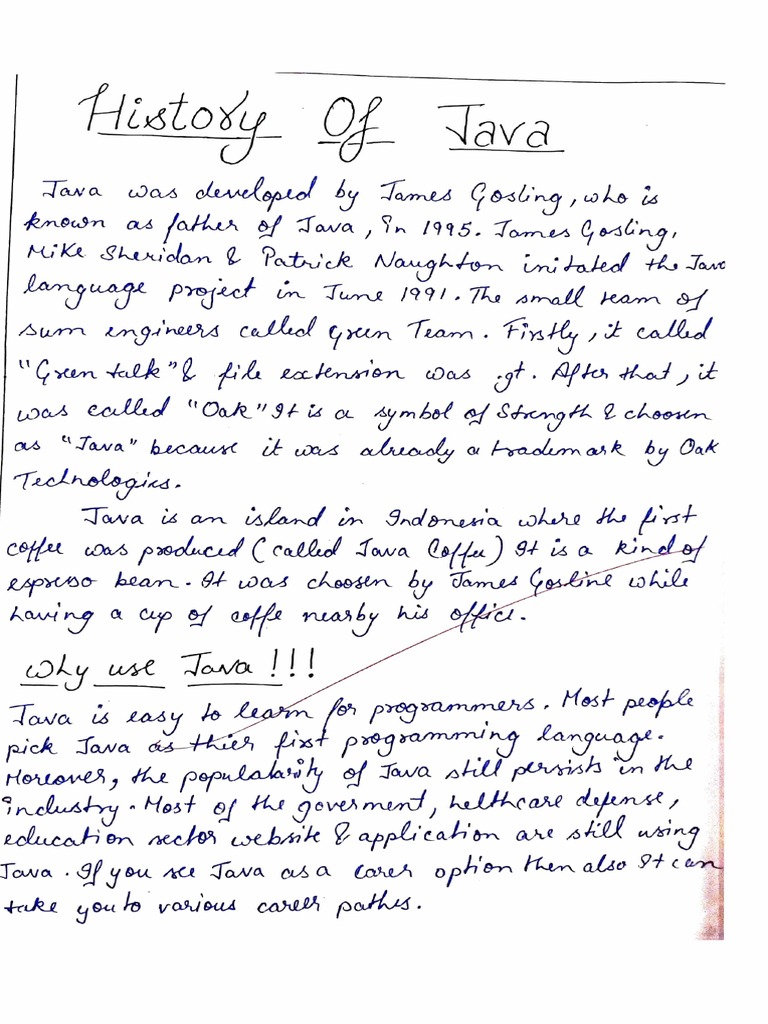 History Of Java
Java was developed by James Gosling, who is
known as father of Java, in 1995. James Gosling,
Mike Sheridan & Patrick Naughton initated the Java
language project in June 1991. The small team of
sum engineers called Green Team. Firstly, it called
"Green talk" & file extension was .gt. After that, it
was called "Oak" It is a symbol of Strength & choosen
as "Java" because it was already a trademark by Oak
Technologies.
Java is an island in Indonesia where the first
coffee was produced (called Java Coffee) It is a kind of
espresso bean. It was choosen by James Gosline while
having a cup of coffe nearby his office.
Why use Java !!!
Java is easy to learn for programmers. Most people
pick Java as thier first programming language.
Moreover, the populatarity of Java still persists in the
industry. Most of the goverment, helthcare defense,
education sector website & application are still using
Java. If you see Java as a carer option then also It can
take you to various career pathes.